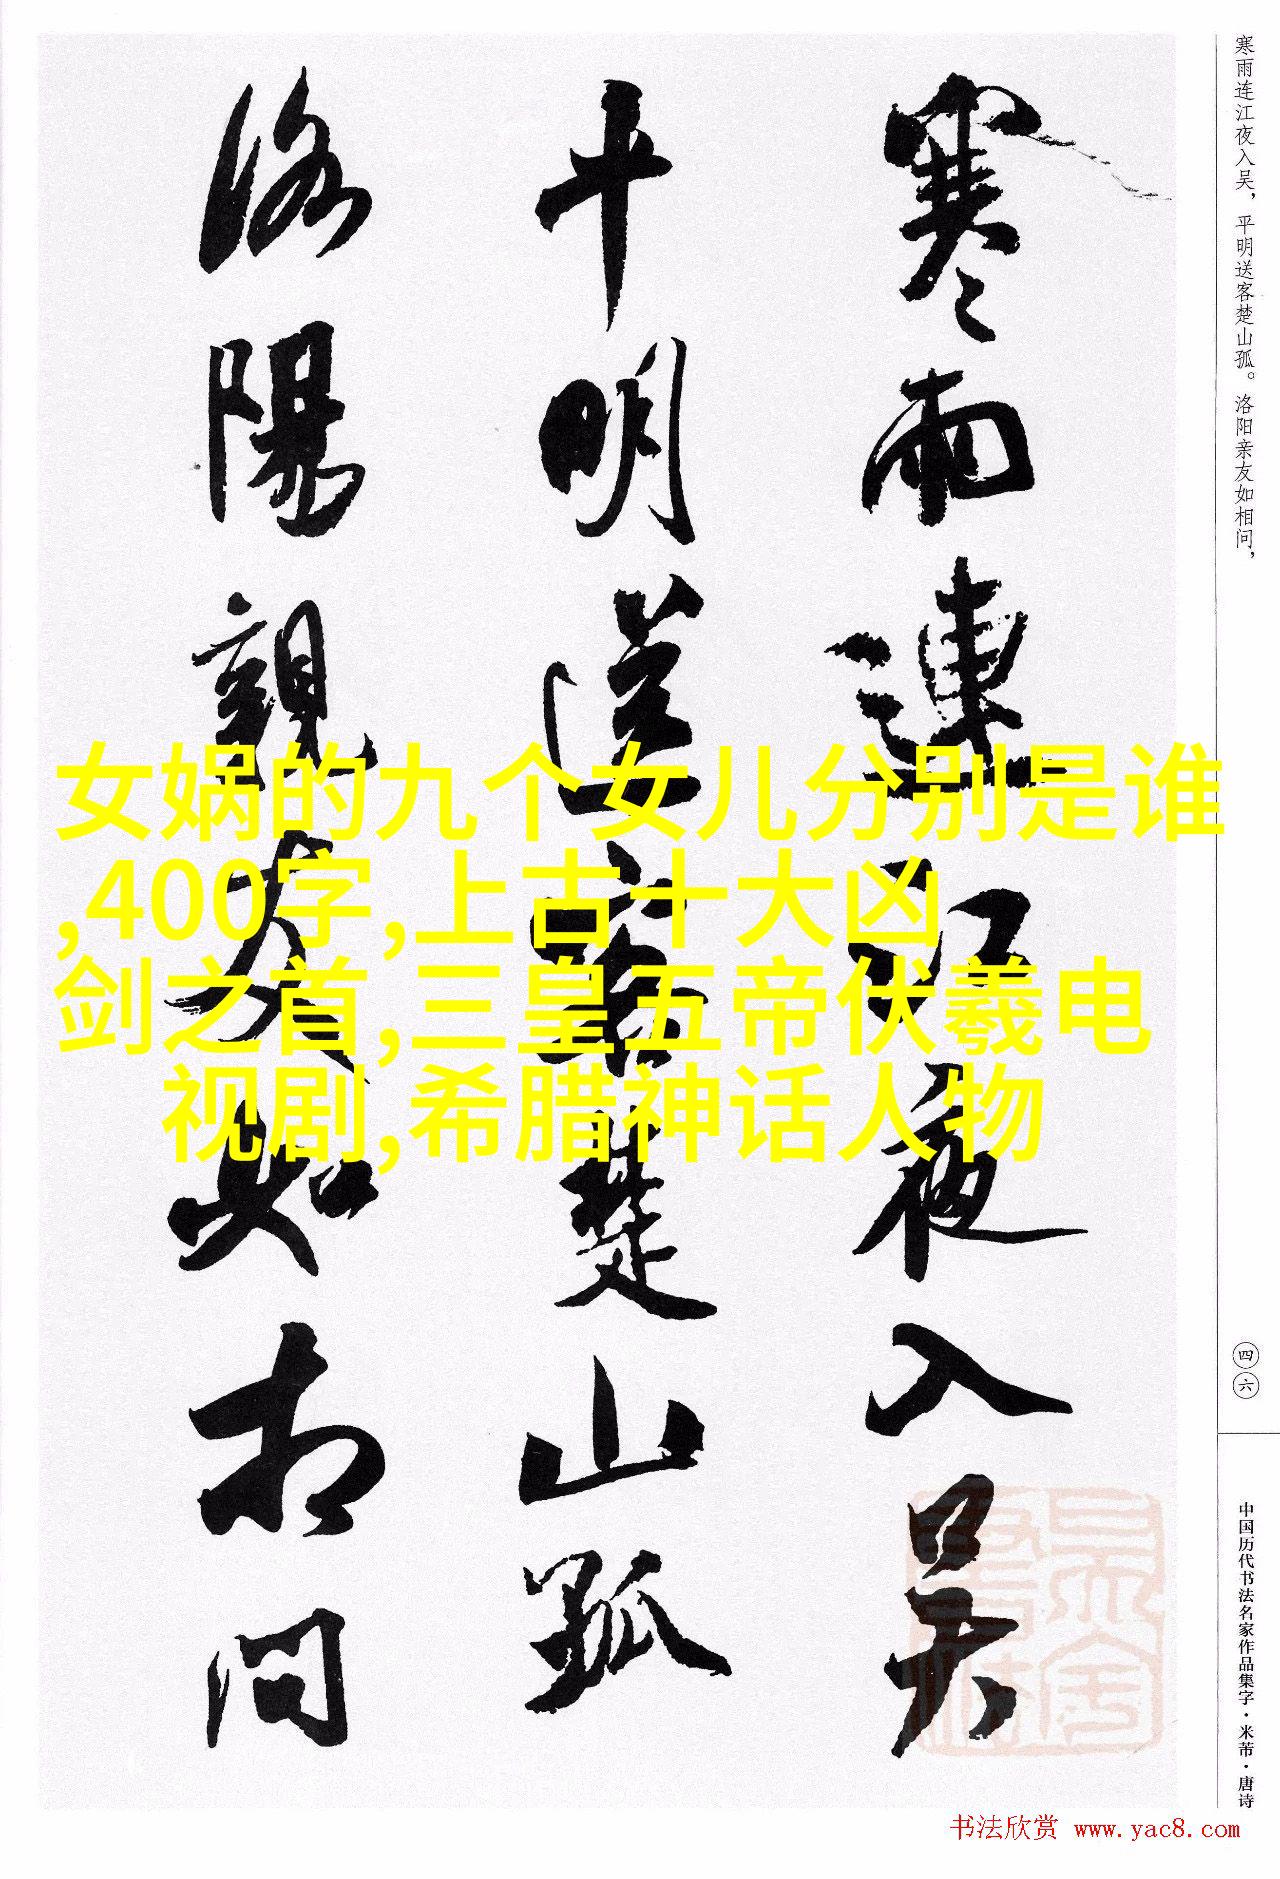 寒雨连江夜入吴，平明送客楚山孤。洛阳亲友如相问，
寒雨連江夜入吴
平明送客楚山孤
洛陽親友如相问
女娲的九个女儿分别是谁
,400字,上古十大凶
剑之首,三皇五帝伏羲电
视剧,希腊神话人物
四六
中国历代书法名家作品集字·米芾·唐诗
书法欣赏 www.yac8.com